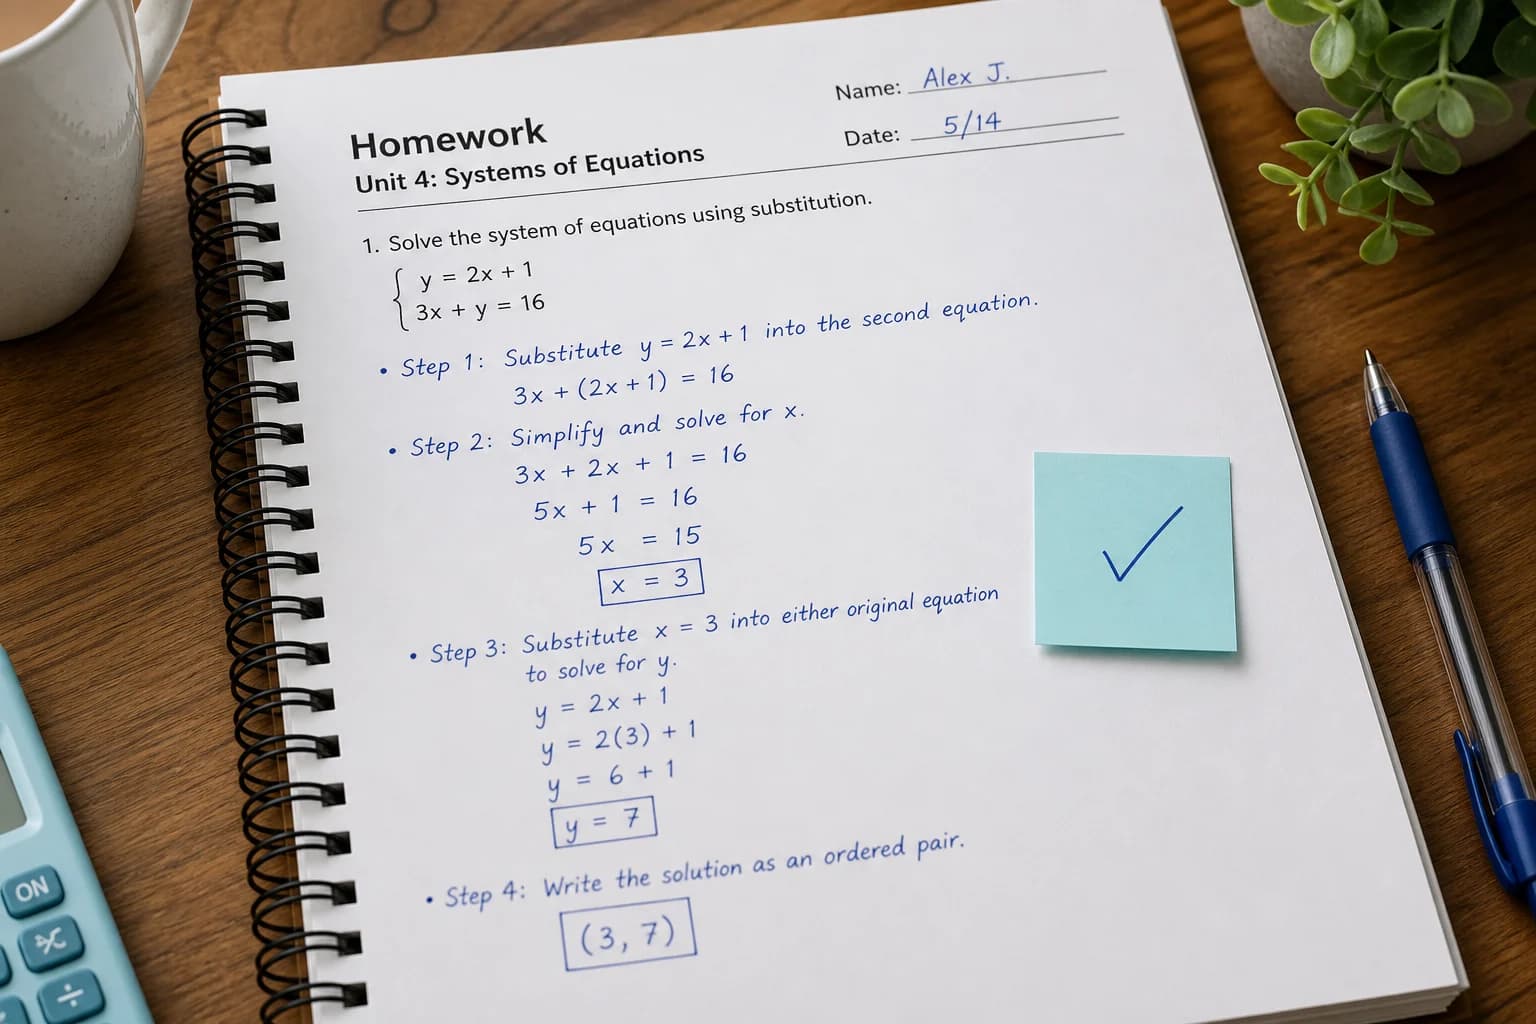 Homework
Unit 4: Systems of Equations
Name: Alex J.
Date: 5/14
1. Solve the system of equations using substitution.
y = 2x + 1
3x + y = 16
• Step 1: Substitute y = 2x + 1 into the second equation.
3x + (2x + 1) = 16
• Step 2: Simplify and solve for x.
3x + 2x + 1 = 16
5x + 1 = 16
5x = 15
x = 3
• Step 3: Substitute x = 3 into either original equation
to solve for y.
y = 2x + 1
y = 2(3) + 1
y = 6 + 1
y = 7
• Step 4: Write the solution as an ordered pair.
(3, 7)
ON
÷